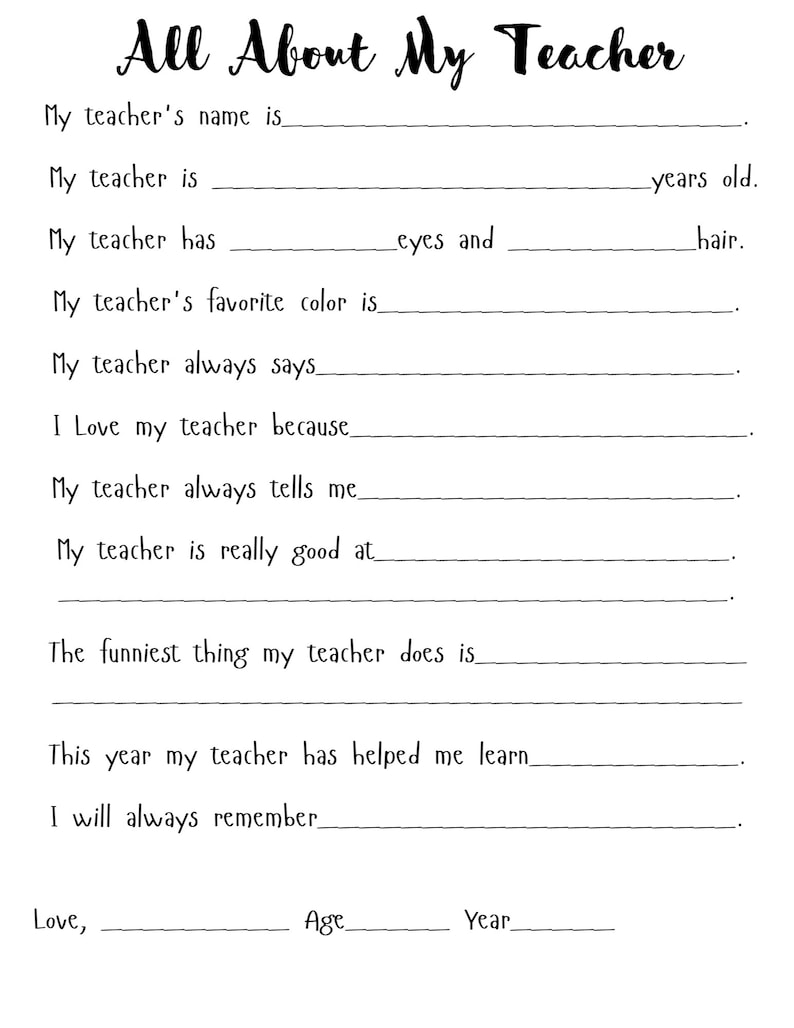 All About My Teacher
My teacher's name is____________________.
My teacher is ____________________years old.
My teacher has __________eyes and __________hair.
My teacher's favorite color is____________________.
My teacher always says____________________.
I Love my teacher because____________________.
My teacher always tells me____________________.
My teacher is really good at____________________.
____________________.
The funniest thing my teacher does is____________________
____________________
This year my teacher has helped me learn____________________.
I will always remember____________________.
Love, __________ Age______ Year______